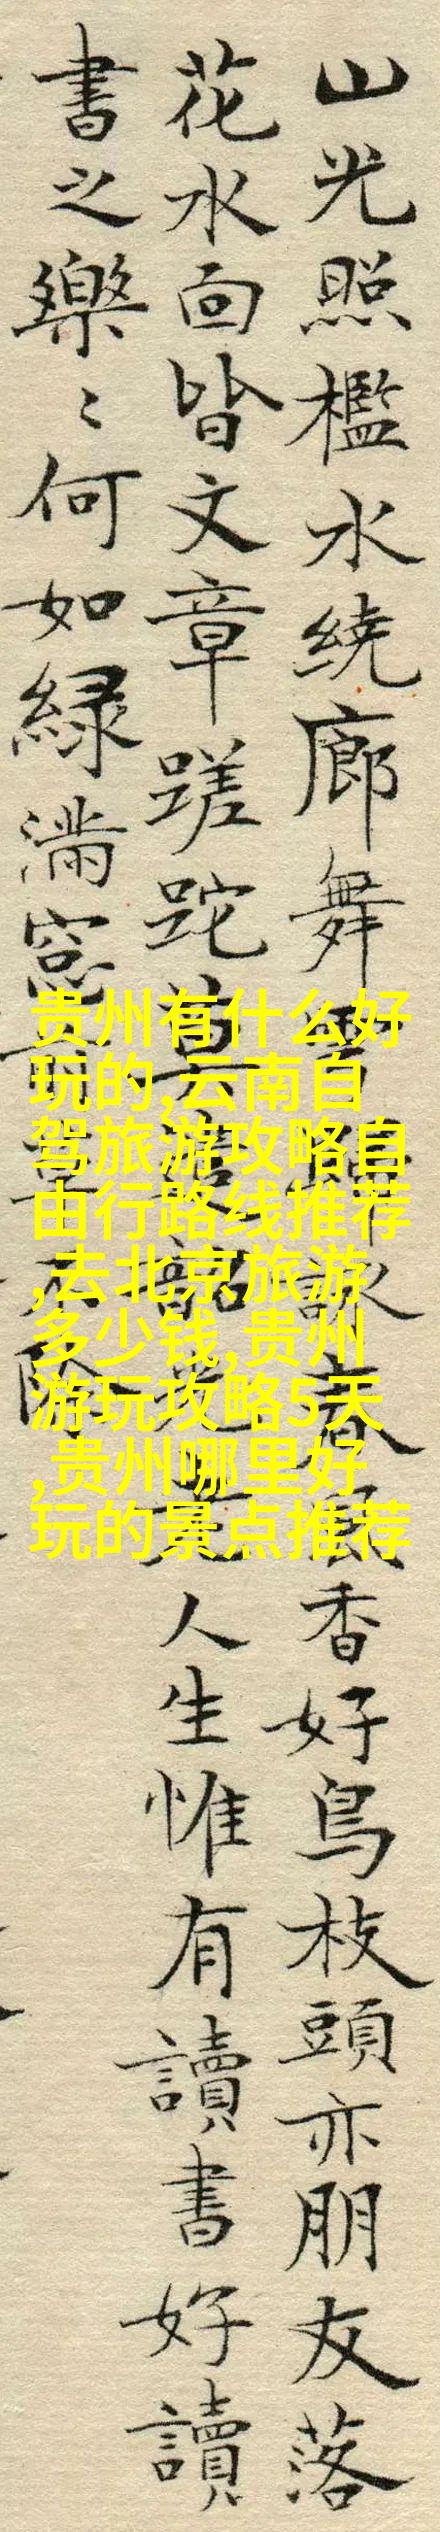 山光照檻水繞廊舞雩歸詠春風香好鳥枝頭亦朋友落
花水面皆文章蹉跎莫遣韶光老人生惟有讀書好讀
書之樂〻何如緑滿窓前草不除
贵州有什么好
玩的,云南自
驾旅游攻略自
由行路线推荐
,去北京旅游
多少钱,贵州
游玩攻略5天
,贵州哪里好
玩的景点推荐